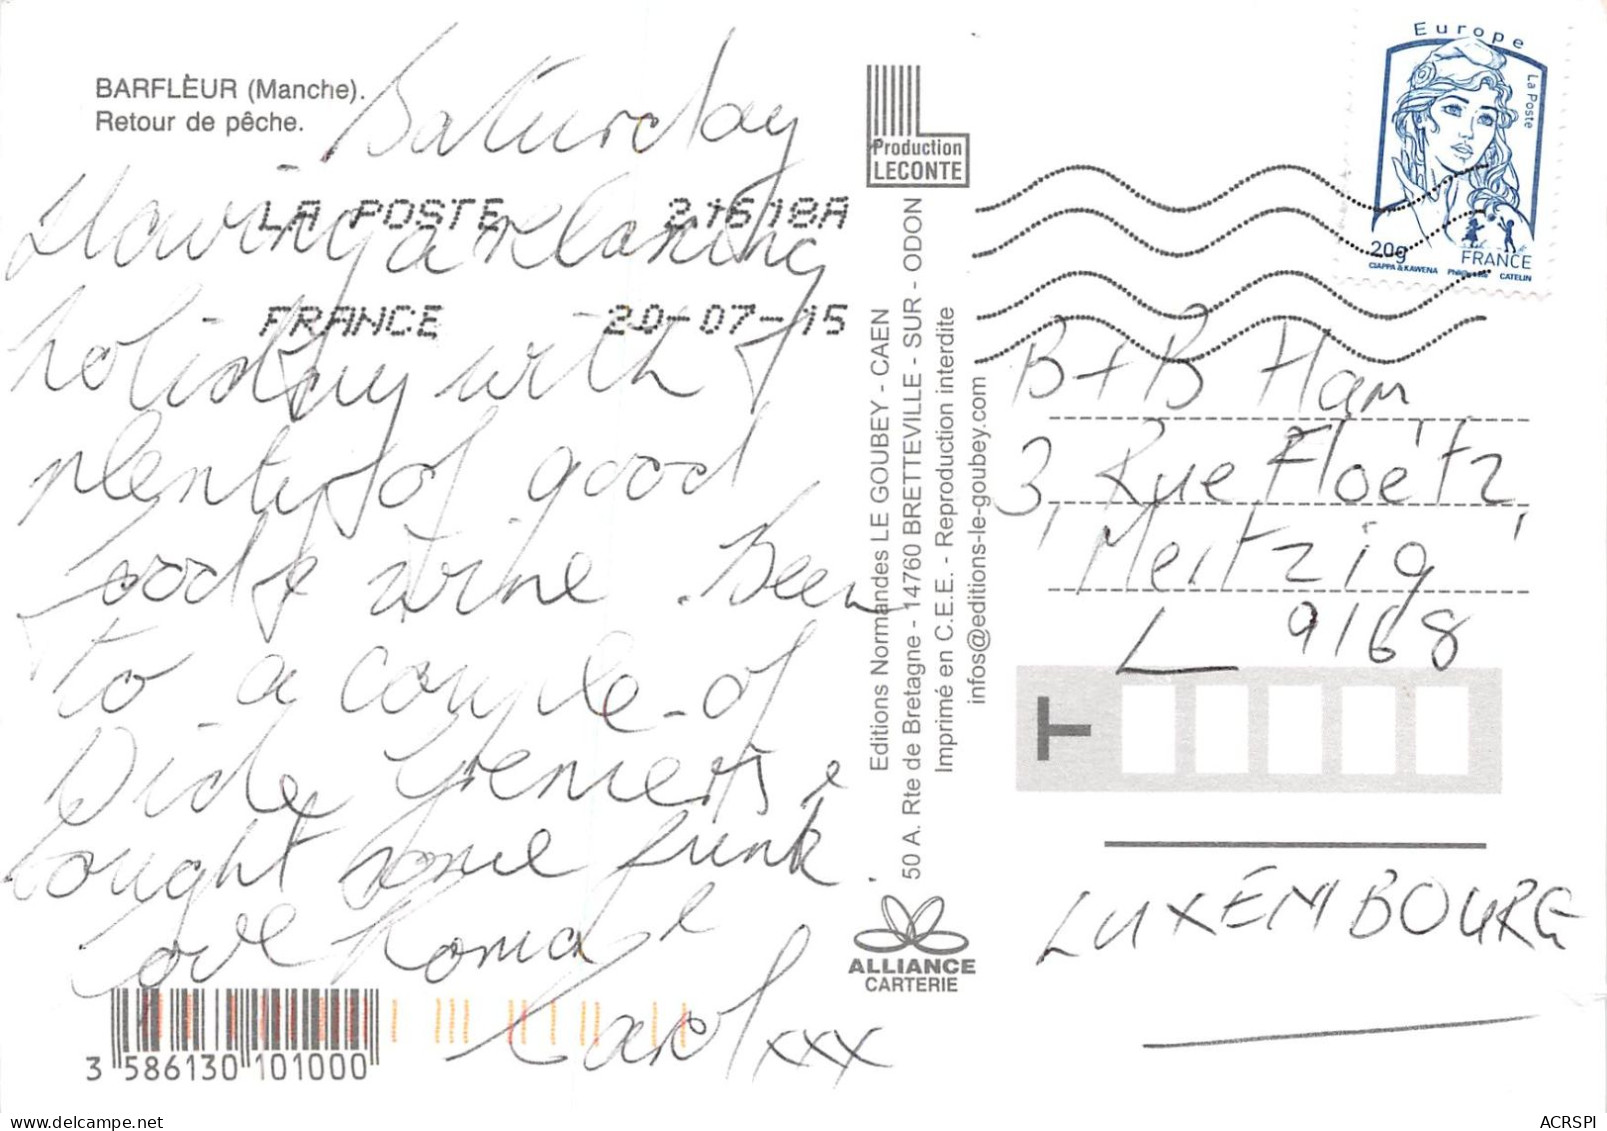 BARFLÈUR (Manche).
Retour de pêche.
Saturday
Having a relaxing
holiday with
plenty of good
food & wine. Been
to a couple of
Vide Greniers &
bought some junk.
Love Roma &
Carol xxx
LA POSTE 21618A
FRANCE 20-07-15
3 586130 101000
Production
LECONTE
Editions Normandes LE GOUBEY - CAEN
50 A. Rte de Bretagne - 14760 BRETTEVILLE - SUR - ODON
Imprimé en C.E.E. - Reproduction interdite
infos@editions-le-goubey.com
ALLIANCE
CARTERIE
Europe
La Poste
20g
FRANCE
CIAPPA & KAWENA
CATELIN
B + B Ham
3, Rue Floëtz
Mertzig
L 9168
T
LUXEMBOURG
ACRSPI